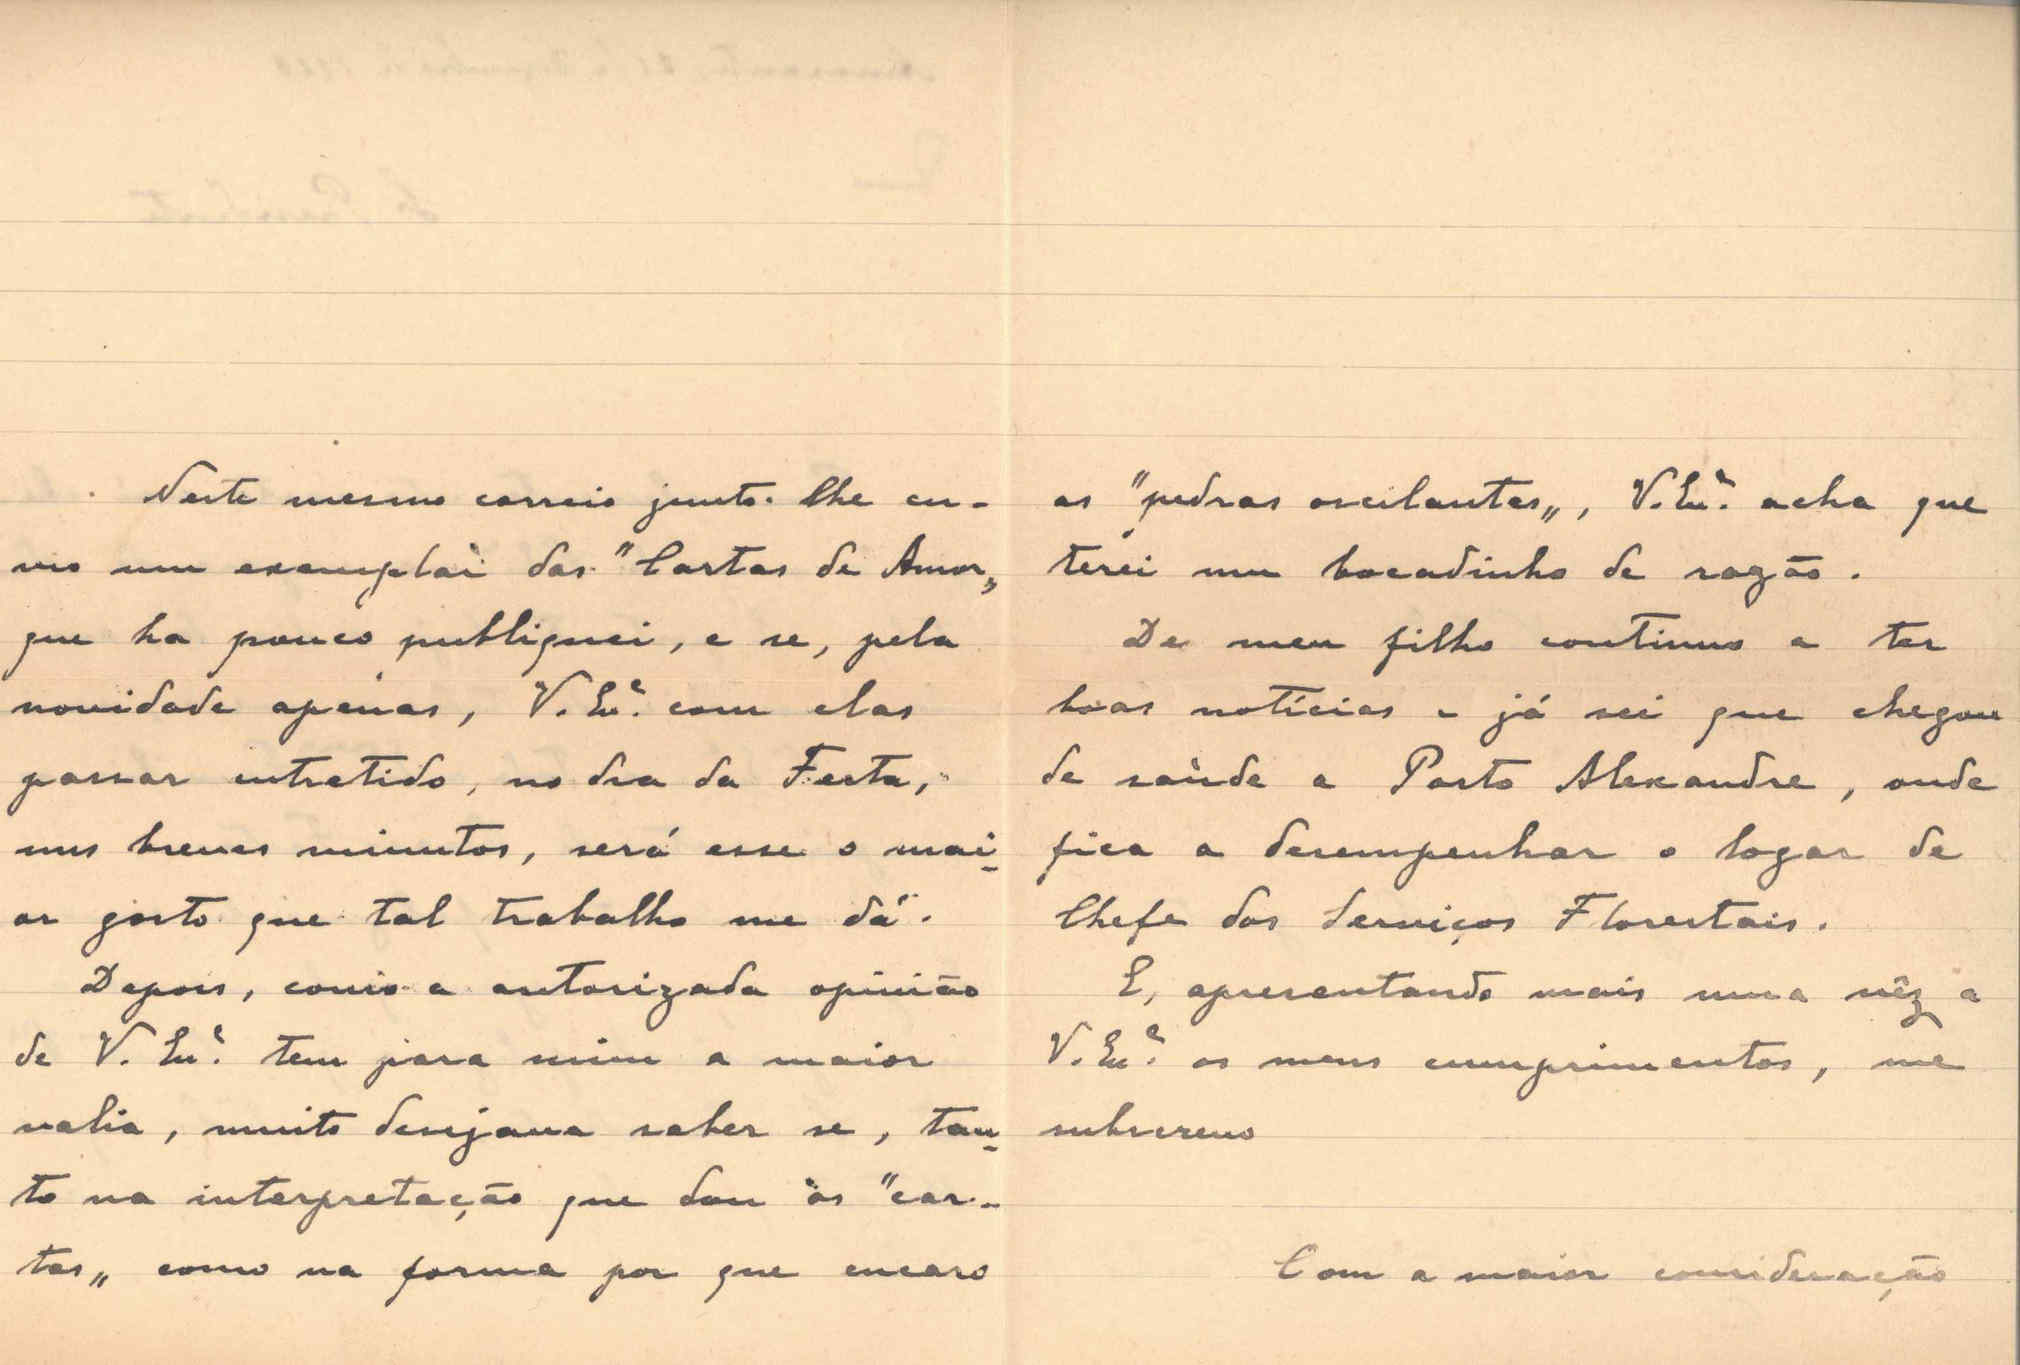 Neste mesmo correio junto lhe en-
vio um exemplar das "Cartas de Amor„
que ha pouco publiquei, e se, pela
novidade apenas, V. Ex.ª com elas
passar entretido, no dia da Festa,
uns breves minutos, será esse o mai-
or gosto que tal trabalho me dá.
Depois, como a autorizada opinião
de V. Ex.ª tem para mim a maior
valia, muito desejava saber se, tan-
to na interpretação que dou ás "car-
tas„ como na forma por que encaro
as "pedras oscilantes„, V. Ex.ª acha que
terei um bocadinho de razão.
De meu filho continuo a ter
boas notícias e já sei que chegou
de saúde a Porto Alexandre, onde
fica a desempenhar o logar de
Chefe dos Serviços Florestais.
E, apresentando mais uma vêz a
V. Ex.ª os meus cumprimentos, me
subscrevo
Com a maior consideração